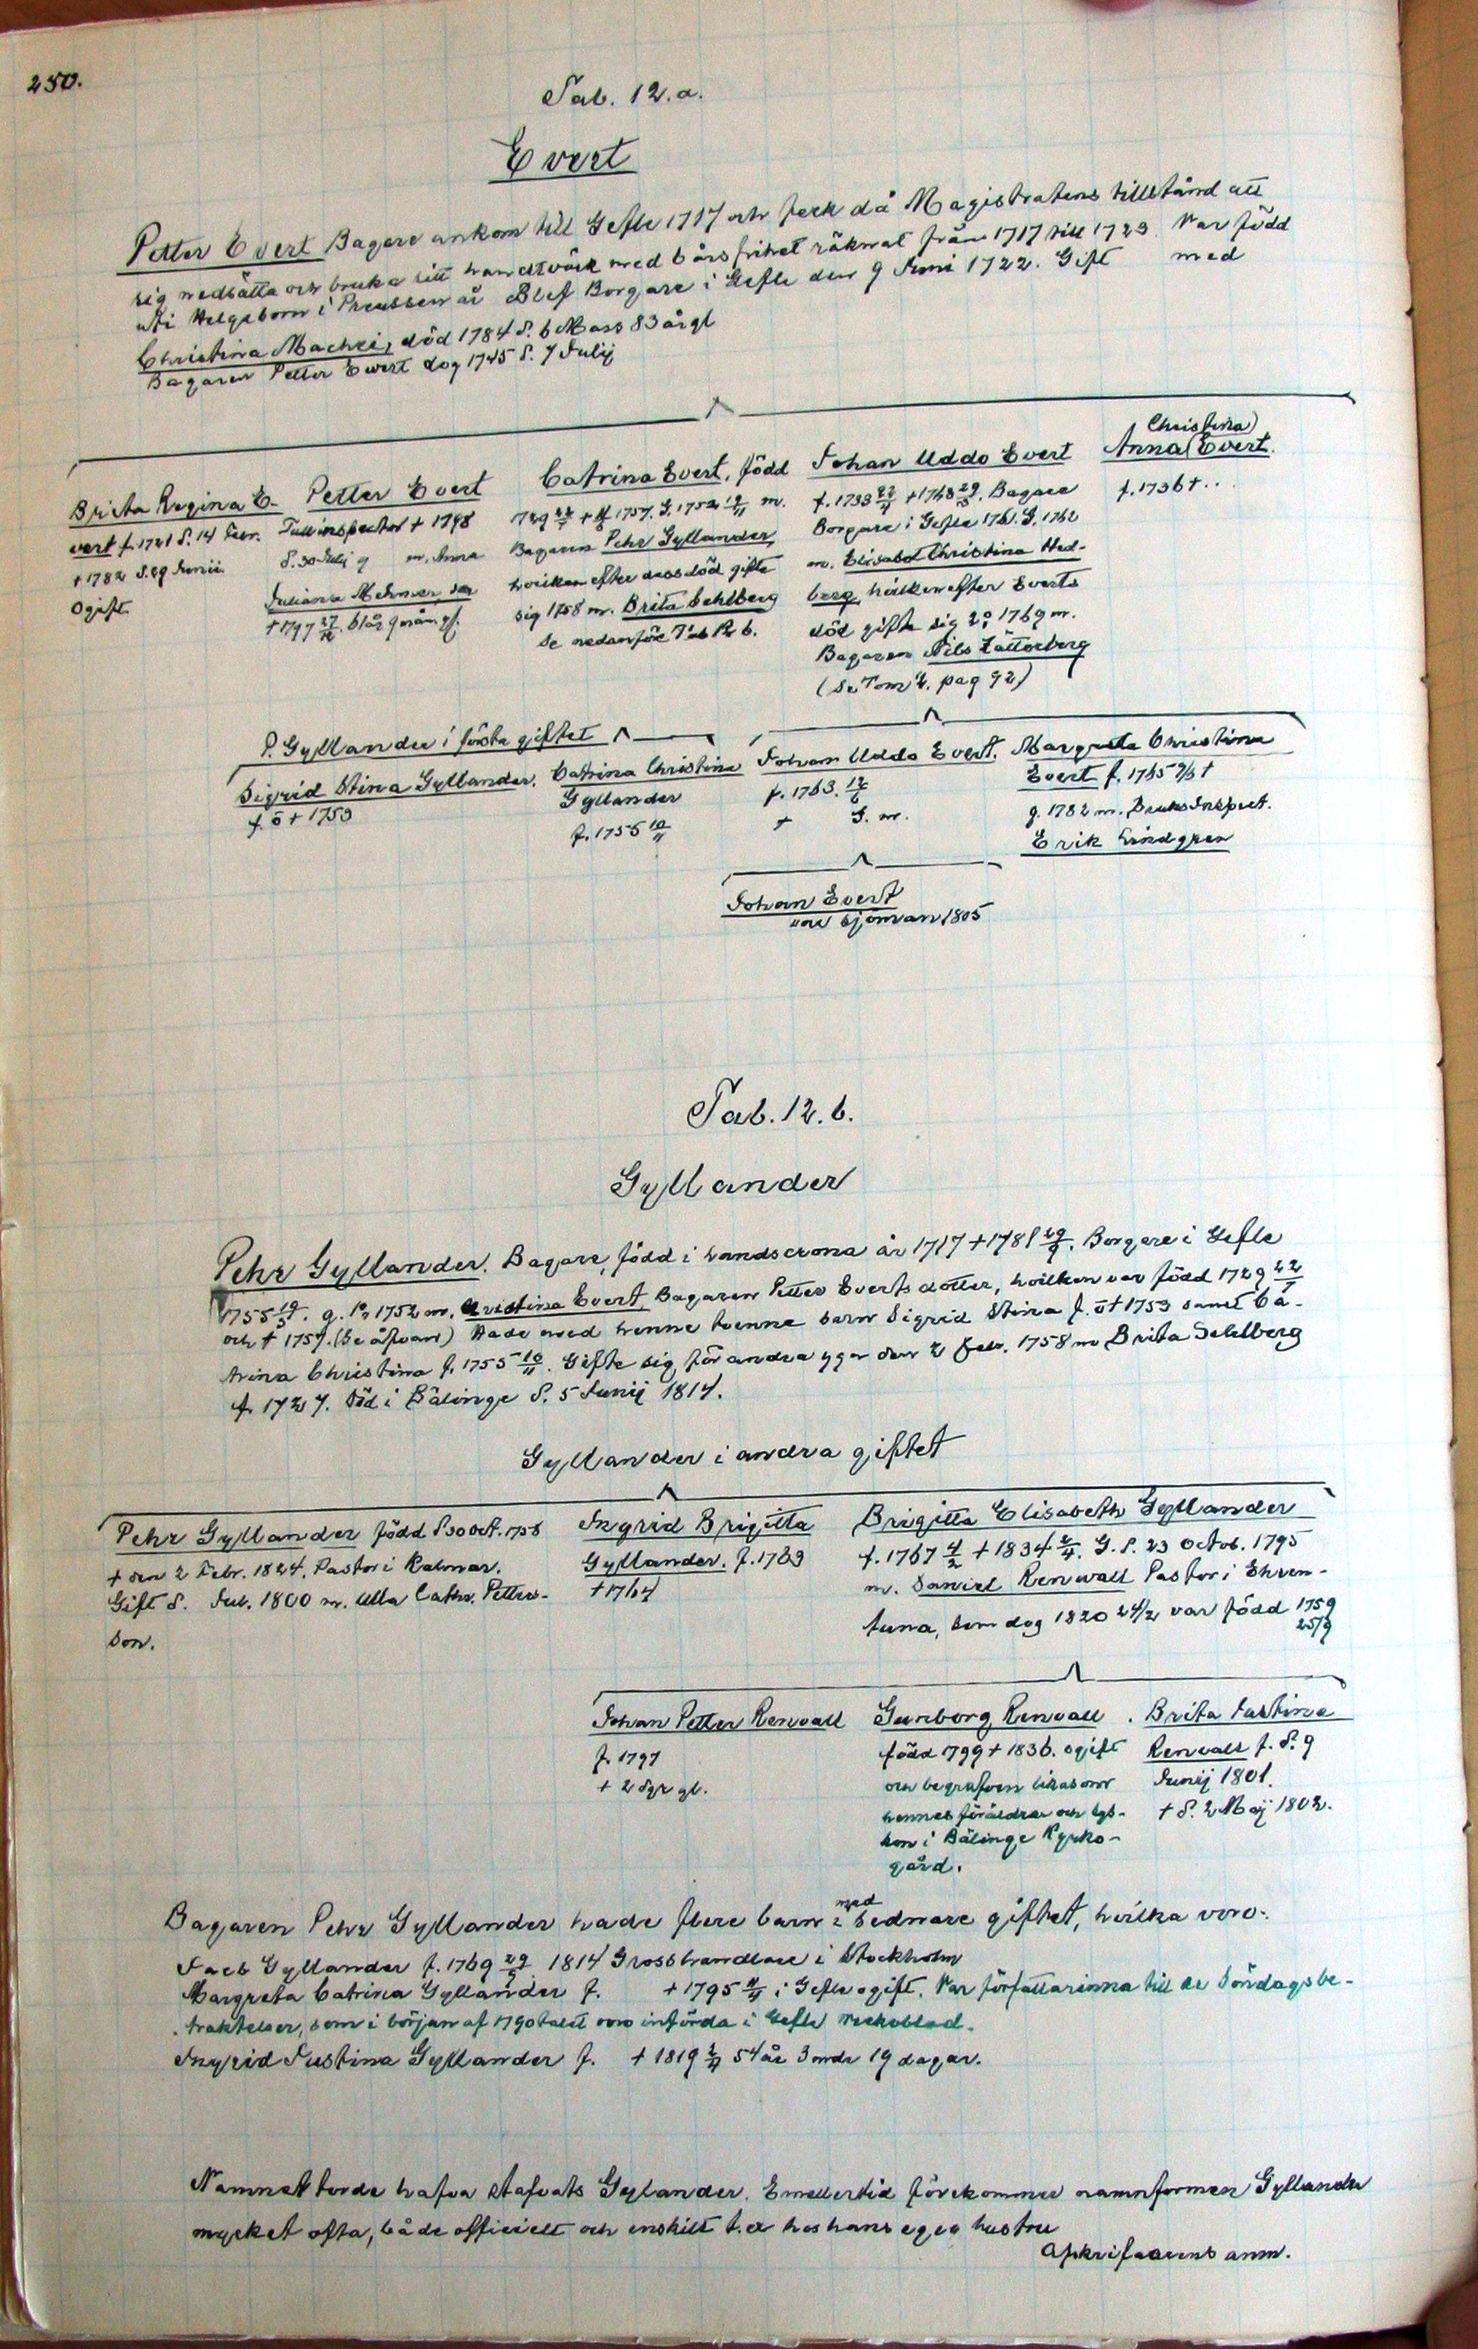 250.
Tab. 12. a.
Evert
Petter Evert Bagare ankom till Gefle 1717 och feck då Magistratens tillstånd att
sig nedsätta och bruka sitt handtvärk med 6 års frihet räknat från 1717 till 1723. Var född
uti Helgeborn i Preussen år Blef Borgare i Gefle den 9 Juni 1722. Gift med
Christina Machei, död 1784 d. 6 Mars 83 år gl
Bagaren Petter Evert dog 1745 d. 7 Julij
Brita Regina E-
vert f. 1721 d. 14 Febr.
+ 1782 d. 29 Junii
Ogift.
Petter Evert
Tullinspector + 1798
d. 30 Julij g m. Anna
Juliana
+ 1797 27/12. 61 år 9 mån. gl.
Catrina Evert, född
1729 22/7 + 1757. G. 1752 19/11 m.
Bagaren Pehr Gyllander,
hvilken efter dess död gifte
sig 1758 m. Brita Sehlberg
Se nedanför Tab 12 b.
Johan Uddo Evert
f. 1733 22/4 + 1768 29/3. Bagare
Borgare i Gefle 1761. G. 1762
m. Elisabet Christina Hed-
berg, hvilken efter Everts
död gifte sig 2o 1769 m.
Bagaren Nils Zätterberg
(Se Tom 2. pag 92)
Christina)
Anna (Evert.
f. 1736 + ..
P. Gyllander i första giftet
Sigrid Stina Gyllander.
f. o + 1753
Catrina Christina
Gyllander
f. 1755 10/11
Johan Uddo Evert.
f. 1763. 12/6
+ G. m.
Margreta Christina
Evert f. 1765 9/5 +
g. 1782 m. Bruks Inspect.
Erik Lindgren
Johan Evert
var sjöman 1805
Tab. 12. b.
Gyllander
Pehr Gyllander. Bagare, född i Landscrona år 1717 + 1781 29/9. Borgare i Gefle
1755 19/5. g. 1o 1752 m. Kristina Evert, Bagaren Petter Everts dotter, hvilken var född 1729 22/7
och + 1757. (Se åfvan) Hade med henne tvenne barn Sigrid Stina f. o + 1753 samt Ca-
trina Christina f. 1755 10/11. Gifte sig för andra ggn den 2 Febr. 1758 m Brita Sehlberg
f. 1727. Död i Bälinge d. 5 Junij 1814.
Gyllander i andra giftet
Pehr Gyllander född d. 30 Oct. 1758
+ den 2 Febr. 1824. Pastor i Kalmar.
Gift d. Jul. 1800 m. Ulla Cathr. Petters-
son.
Ingrid Brigitta
Gyllander. f. 1763
+ 1764
Brigitta Elisabeth Gyllander
f. 1767 4/2 + 1834 2/4. G. d. 23 Octob. 1795
m. Daniel Renwall Pastor i Ehren-
tuna, som dog 1820 24/2 var född 1759
25/9
Johan Petter Renvall
f. 1797
+ 2 dgr gl.
Gunborg Renvall.
född 1799 + 1836. ogift
och begrafven likasom
hennes föräldrar och sys-
kon i Bälinge Kyrko-
gård.
Brita Justina
Renvall f. d. 9
Junij 1801.
+ d. 2 Maj 1802.
Bagaren Pehr Gyllander hade flere barn i med sednare giftet, hvilka voro:
Jacb Gyllander f. 1769 1814 Grosshandlare i Stockholm
Margreta Catrina Gyllander f. + 1795 i Gefle ogift. Var författarinna till de söndagsbe-
traktelser, som i början af 1790talet voro införda i Gefle Veckoblad.
Ingrid Justina Gyllander f. + 1819 54 år 3 mdr 19 dagar.
Namnet torde hafva stafvats Gylander. Emellertid förekommer namnformen Gyllander
mycket ofta, både officielt och enskilt t.ex hos hans egen hustru
Afskrifvarens anm.